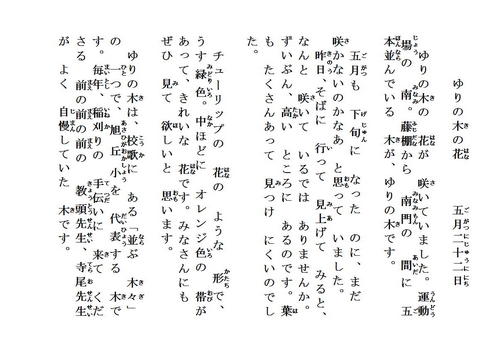 ゆりの木の花　五月二十二日
ゆりの木の　花が　咲いていました。運動
場の　南。藤棚から　南門の　間に　五
本並んでいる　木が、ゆりの木です。
五月も　下旬に　なった　のに、まだ
咲かないのかなあ　と思って　いました。
昨日、そばに　行って　見上げて　みると、
なんと　咲いて　いるでは　ありませんか。
ずいぶん、高い　ところに　あるのです。葉
もたくさんあって　見つけにくいのでし
た。
チューリップの　花の　ような　形で、
うす緑色。中ほどに　オレンジ色の　帯が
あって、きれいな　花です。みなさんにも
ぜひ　見て　欲しいと　思います。
ゆりの木は、校歌に　ある「並ぶ　木々」
の　一つで、旭丘小を　代表する　木で
す。毎年、稲刈りの　手伝いに　来て　くだ
さる　前の前の前の　教頭先生、寺尾先生
が　よく　自慢していた　木です。